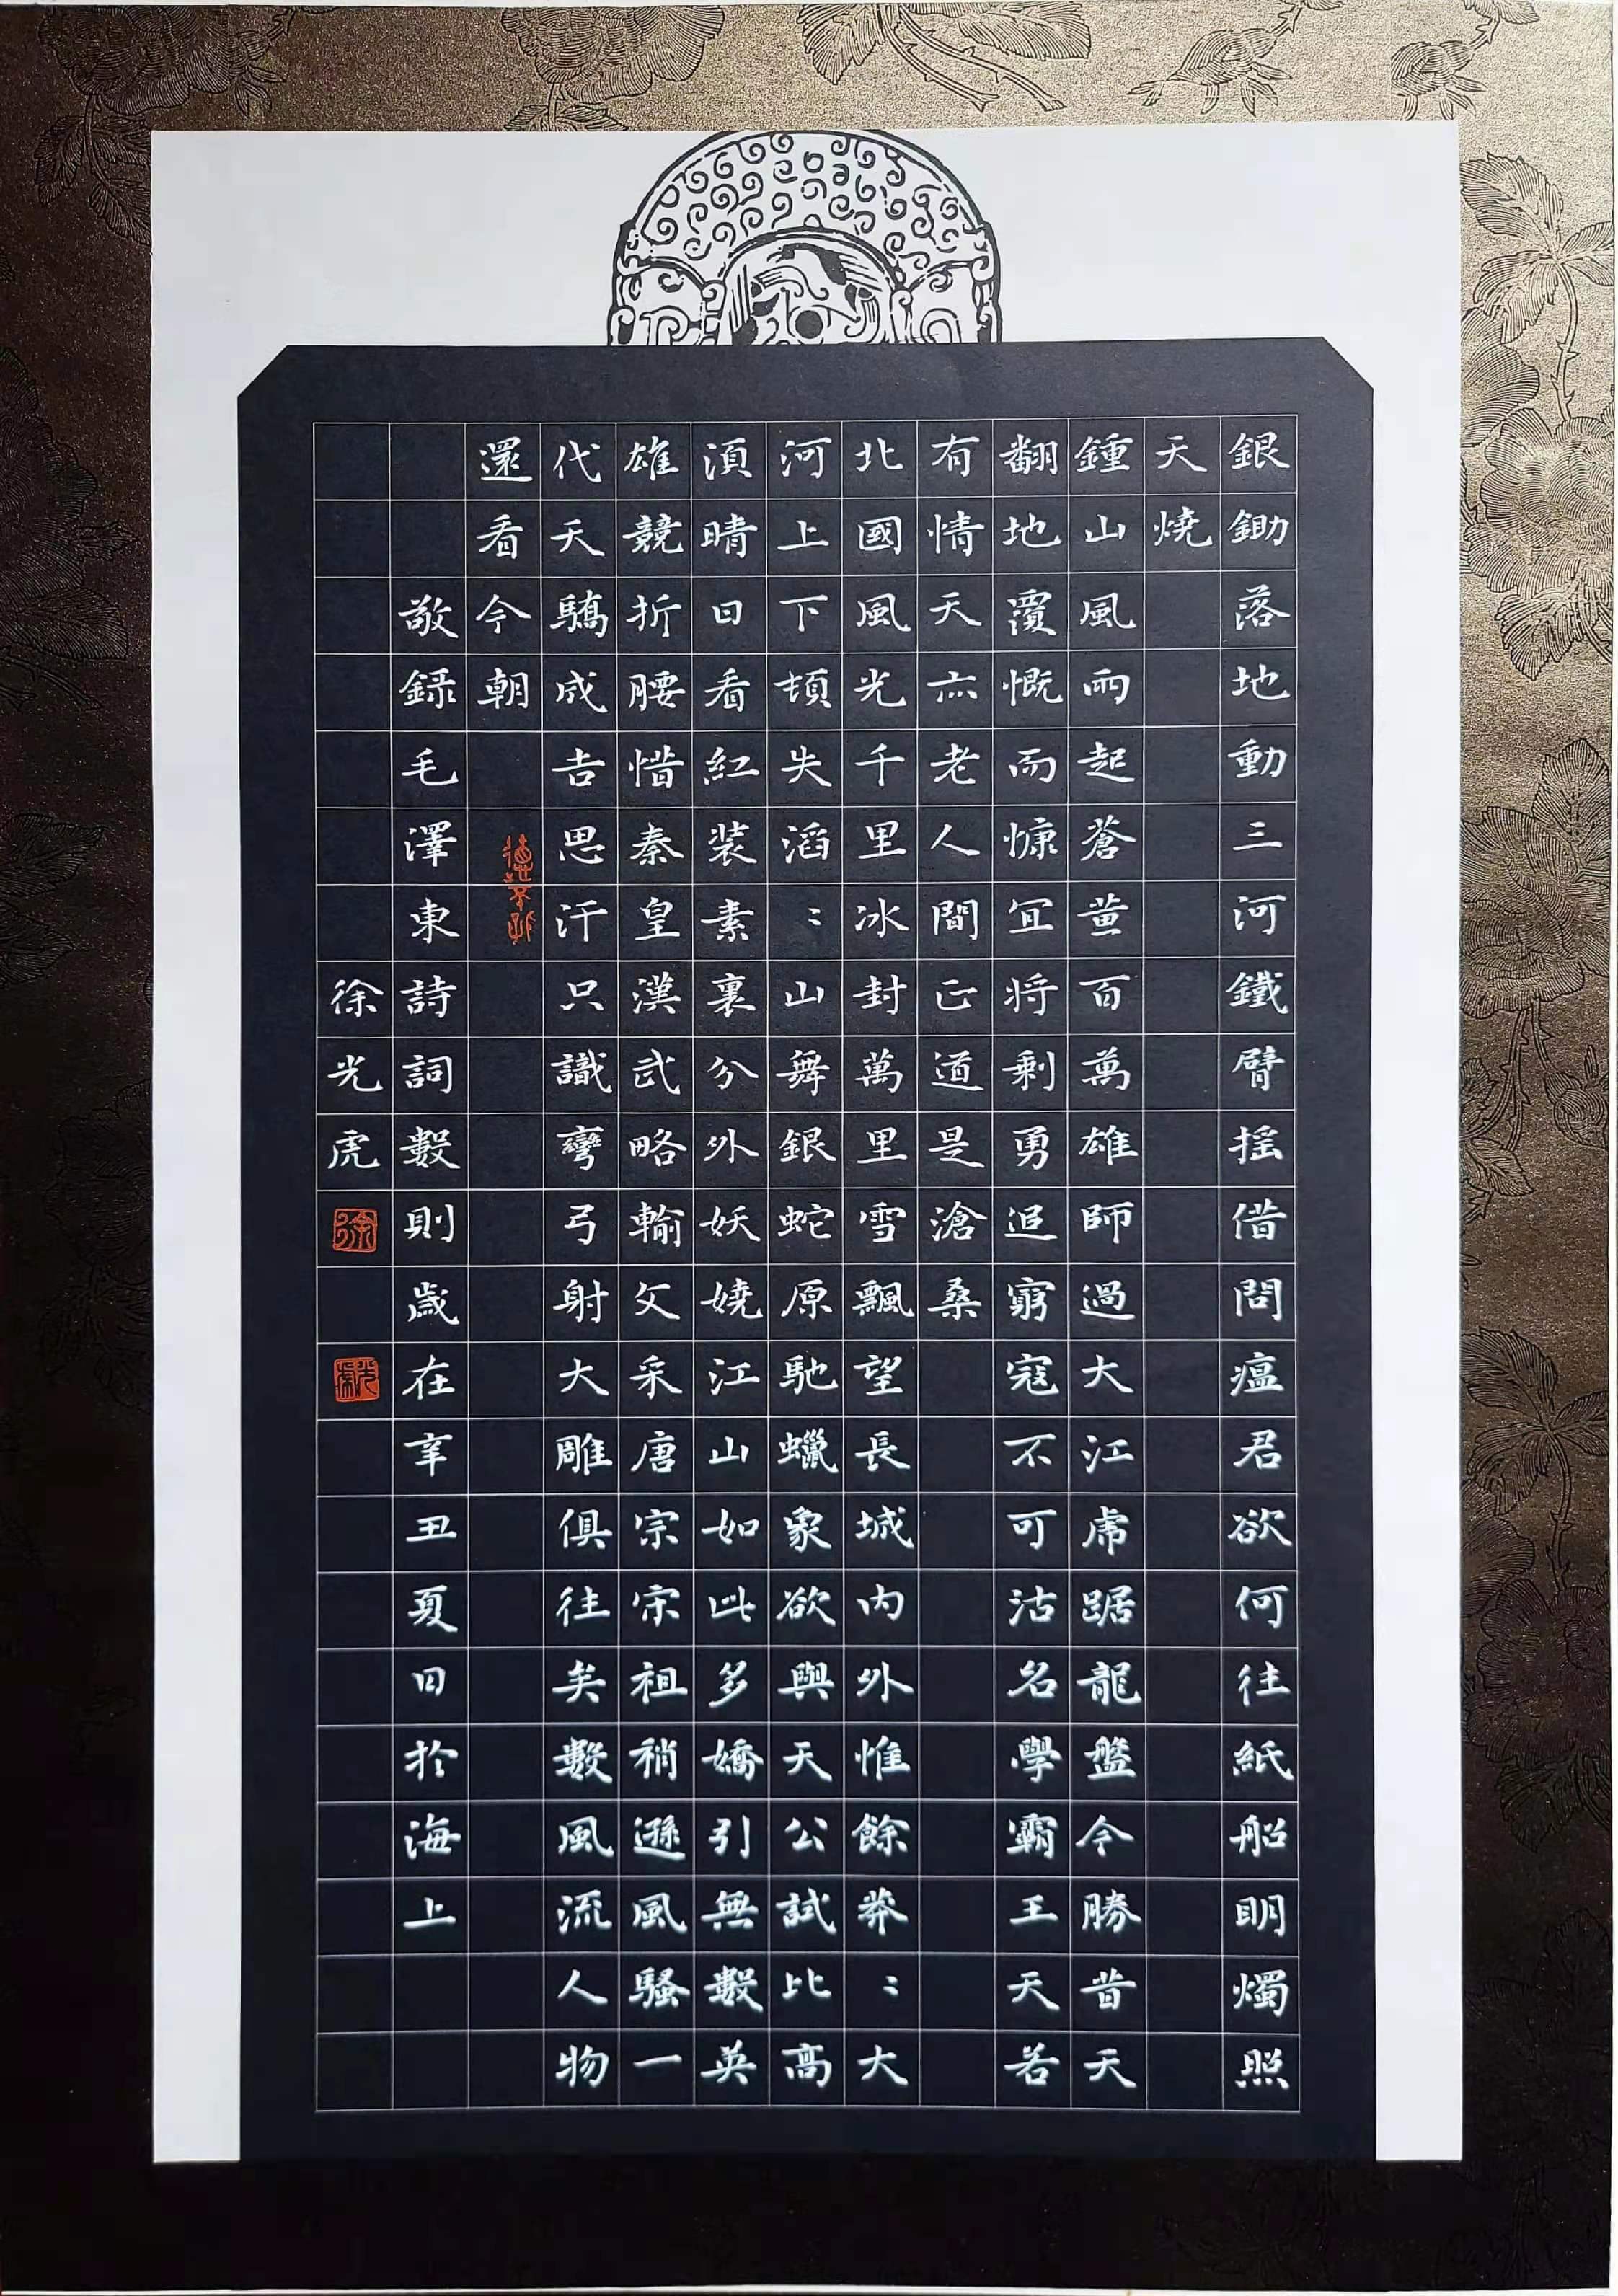 銀鋤落地動三河鐵臂摇借問瘟君欲何往紙船明燭照
天燒
鍾山風雨起蒼黄百萬雄師過大江虎踞龍盤今勝昔天
翻地覆慨而慷宜將剩勇追窮寇不可沽名學霸王天若
有情天亦老人間正道是滄桑
北國風光千里冰封萬里雪飄望長城内外惟餘莽〻大
河上下頓失滔〻山舞銀蛇原馳蠟象欲與天公試比高
須晴日看紅装素裹分外妖嬈江山如此多嬌引無數英
雄競折腰惜秦皇漢武略輸文采唐宗宋祖稍遜風騷一
代天驕成吉思汗只識彎弓射大雕俱往矣數風流人物
還看今朝
敬録毛澤東詩詞數則歲在辛丑夏日於海上
徐光虎
徐
光虎